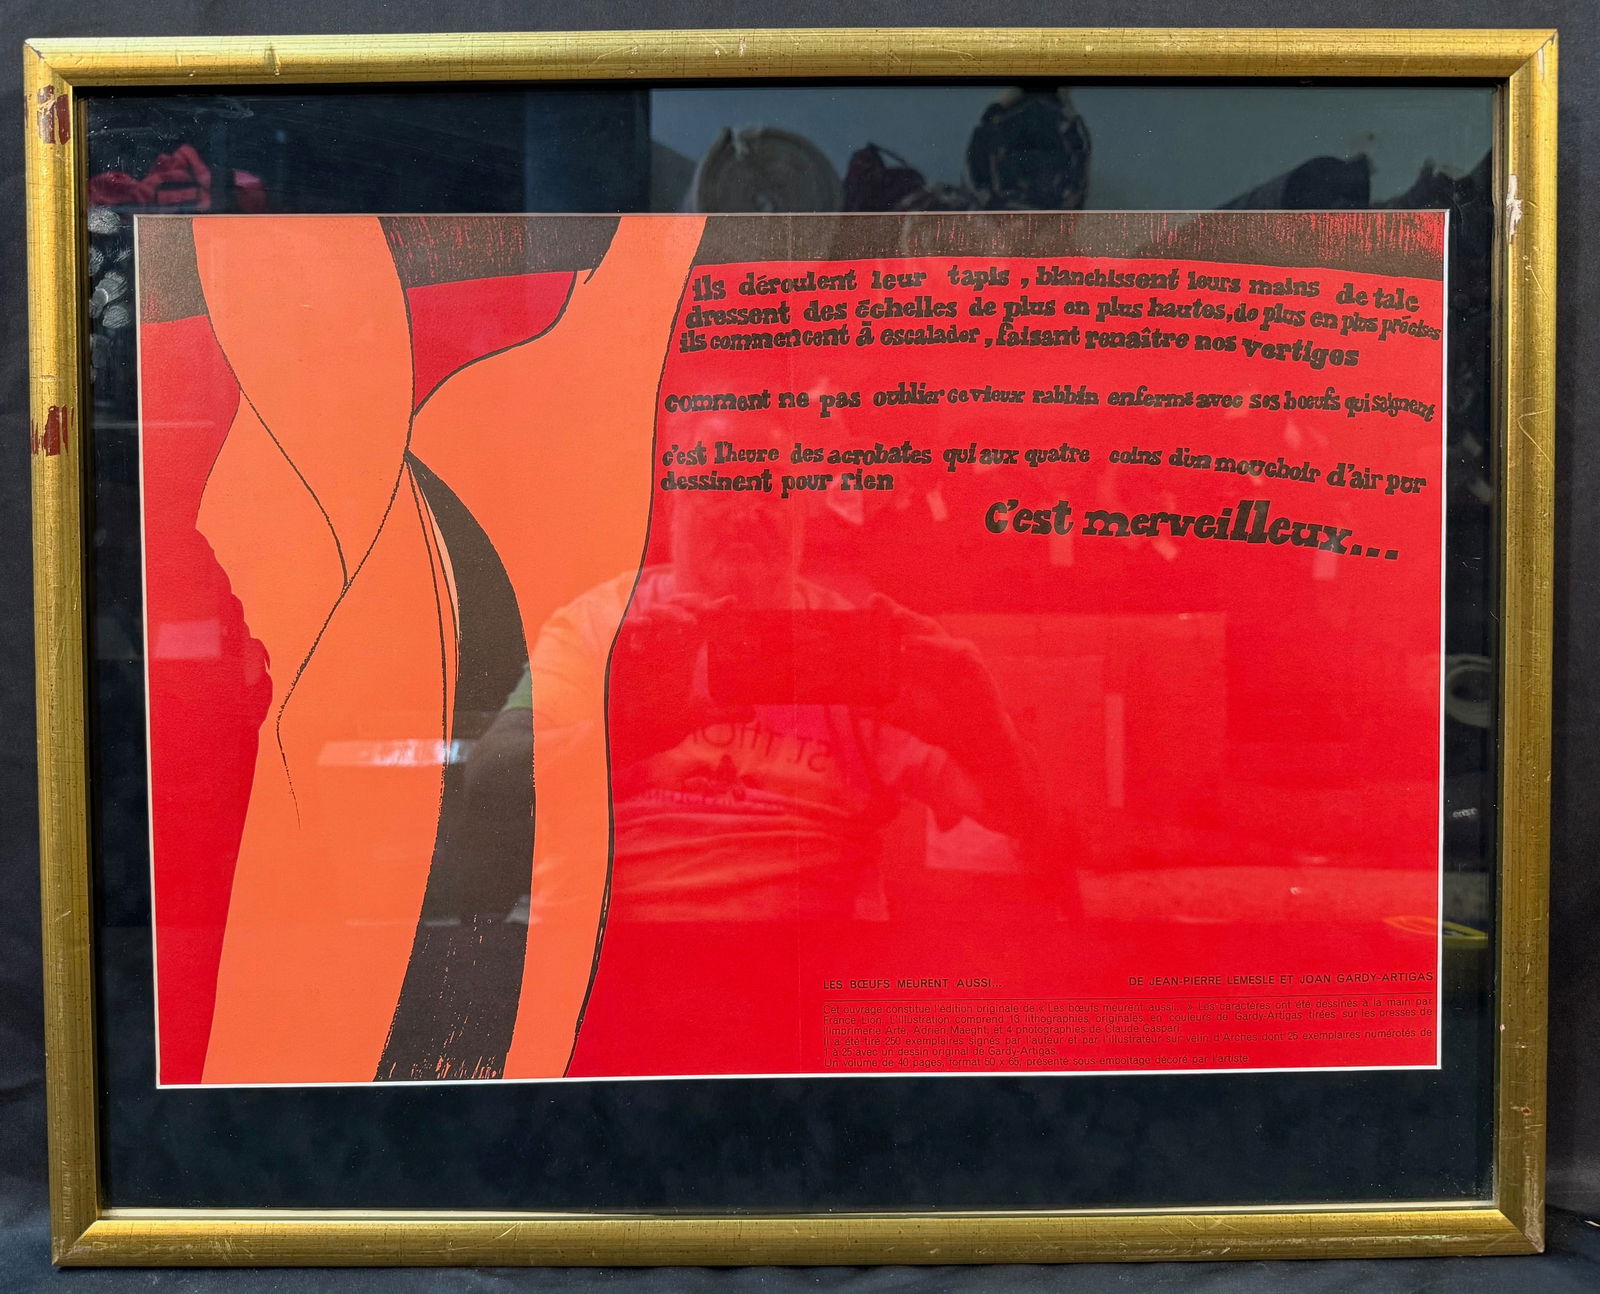 ils déroulent leur tapis, blanchissent leurs mains de talc
dressent des échelles de plus en plus hautes, de plus en plus précises
ils commencent à escalader, faisant renaître nos vertiges
comment ne pas oublier ce vieux rabbin enfermé avec ses bœufs qui saignent
c'est l'heure des acrobates qui aux quatre coins d'un mouchoir d'air pur
dessinent pour rien
c'est merveilleux...
LES BŒUFS MEURENT AUSSI... DE JEAN-PIERRE LEMESLE ET JOAN GARDY-ARTIGAS
Cet ouvrage constitue l'édition originale de « Les bœufs meurent aussi... » Les caractères ont été dessinés à la main par
France Lion. L'illustration comprend 13 lithographies originales en couleurs de Gardy-Artigas tirées sur les presses de
l'Imprimerie Arte, Adrien Maeght, et 4 photographies de Claude Gaspari.
Il a été tiré 250 exemplaires signés par l'auteur et par l'illustrateur sur vélin d'Arches dont 25 exemplaires numérotés de
1 à 25 avec un dessin original de Gardy-Artigas.
Un volume de 40 pages, format 50 x 65, présenté sous emboîtage décoré par l'artiste.
ST. THO